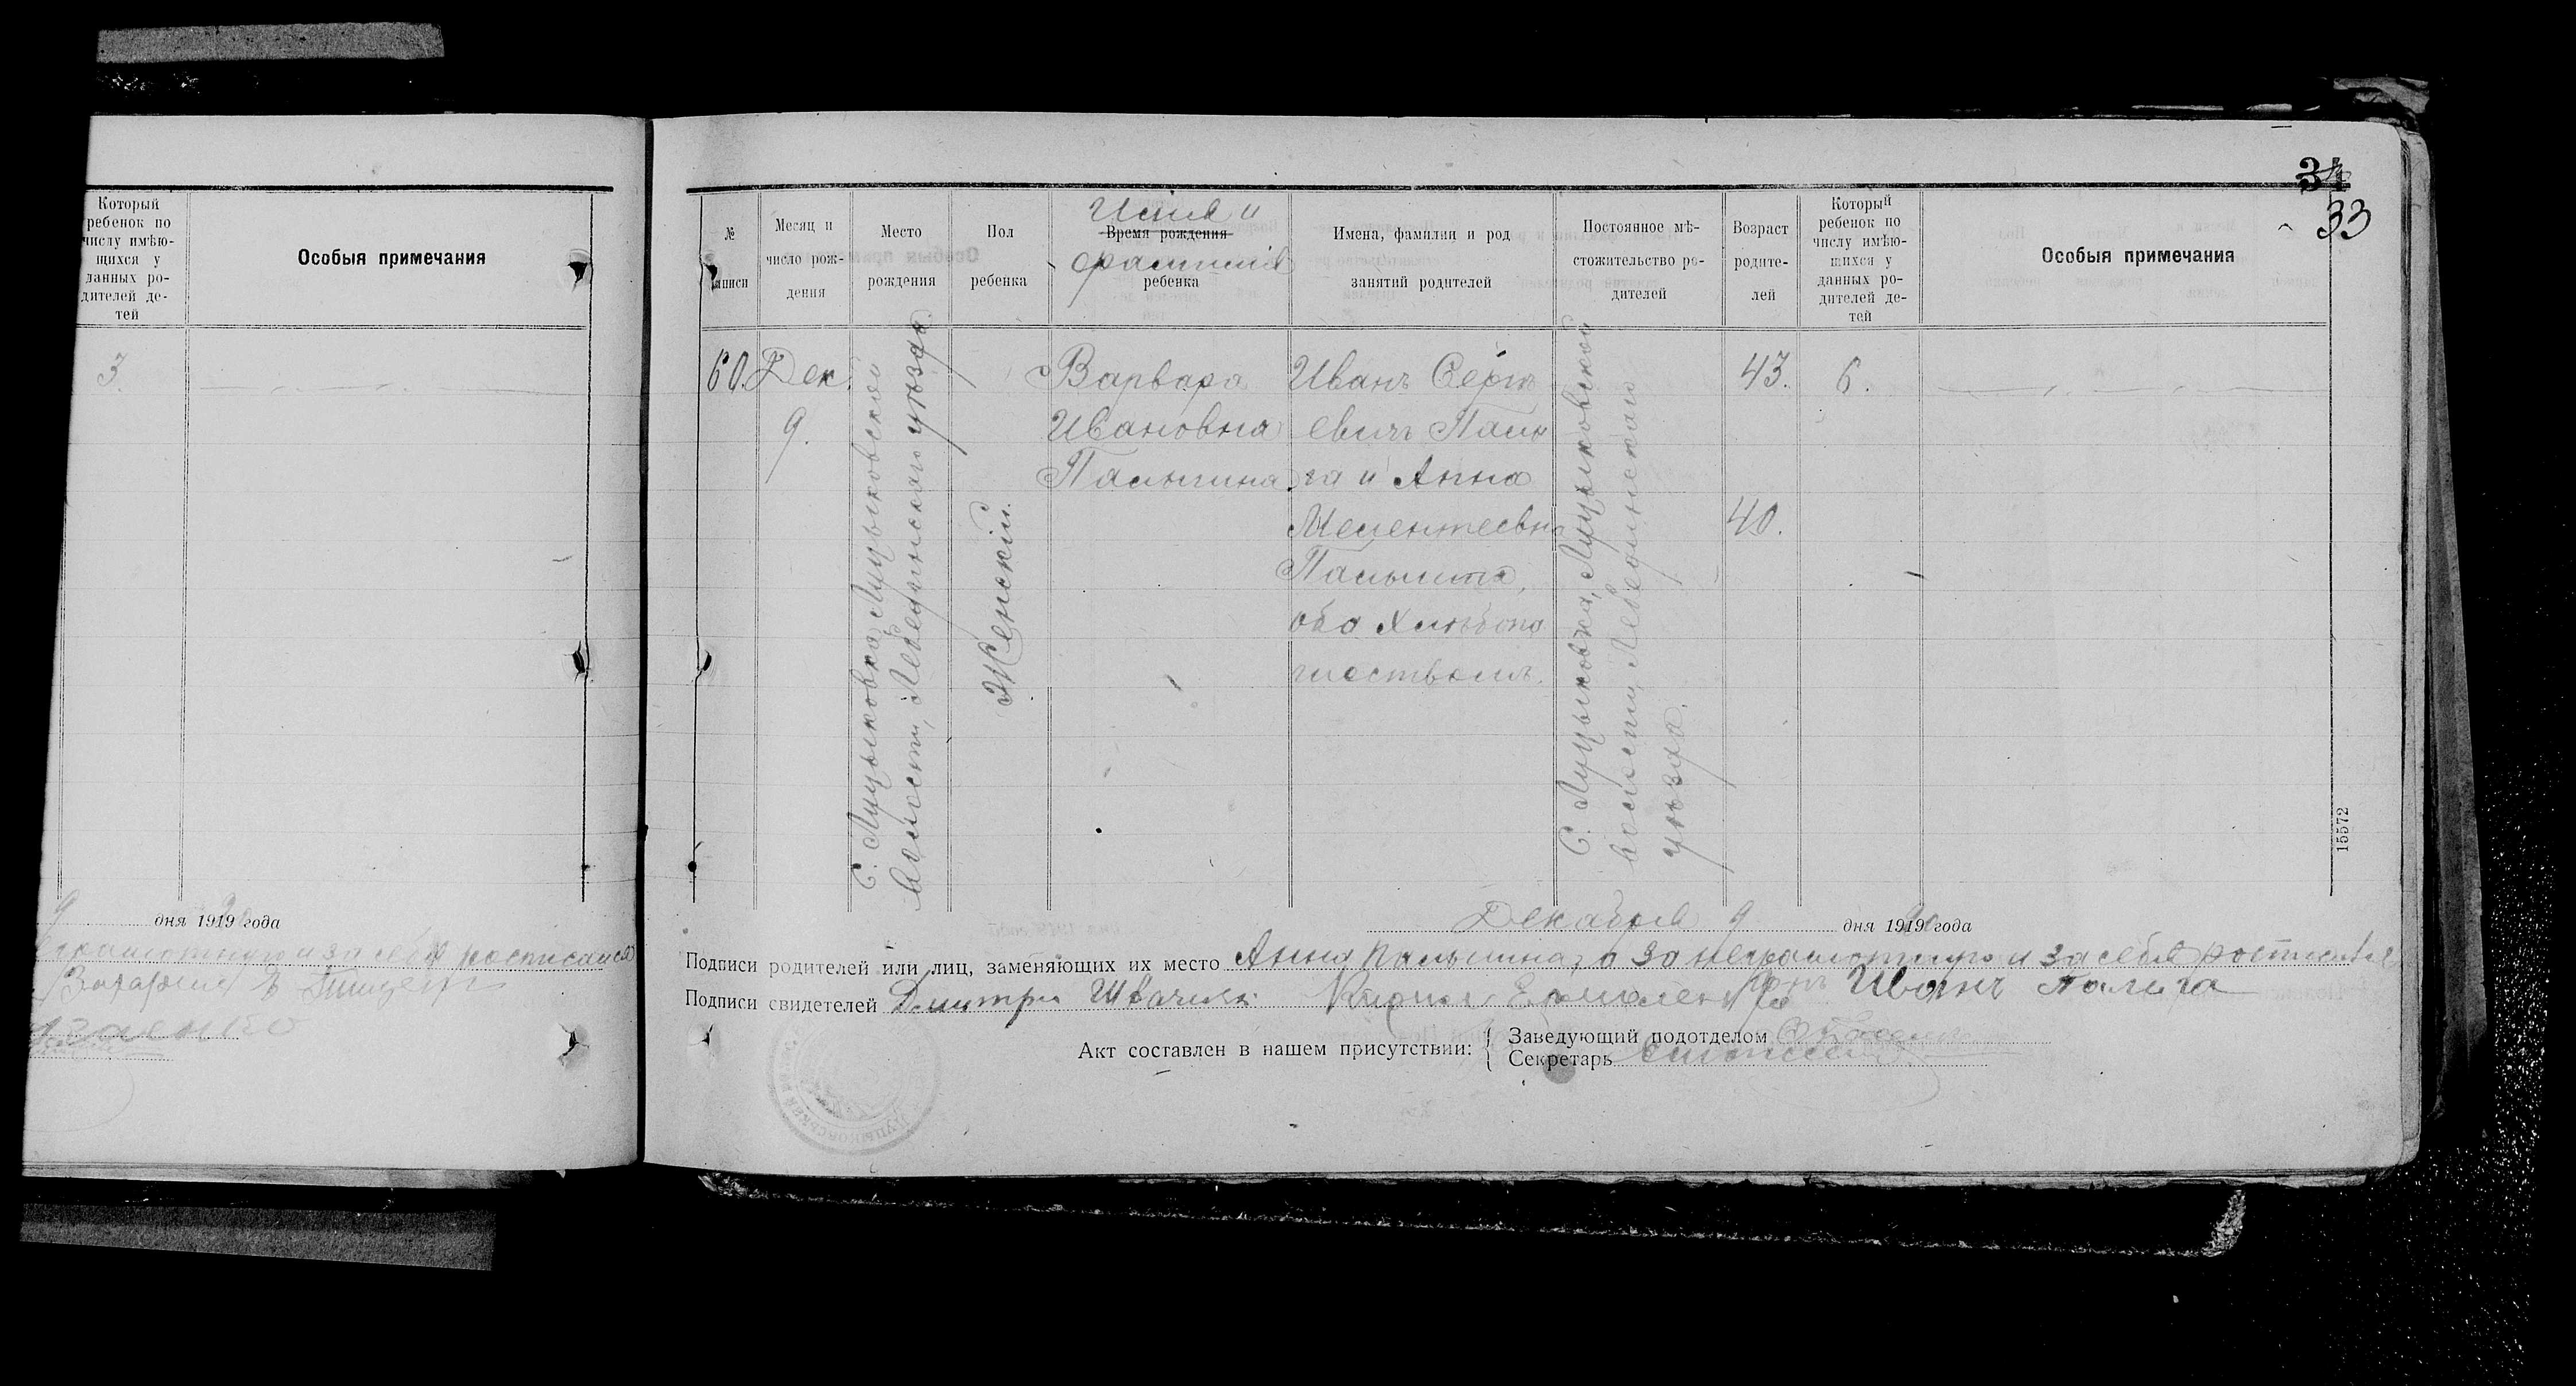 Который
ребенок по
числу имѣю-
щихся у
данных ро-
дителей де-
тей
Особыя примечания
3.
9 дня 1919 года
и за себя росписался
34
33
№
записи
Месяц и
число рож-
дения
Место
рождения
Пол
ребенка
Имя и
Время рождения
фамилия
ребенка
Имена, фамилии и род
занятий родителей
Постоянное мѣ-
стожительство ро-
дителей
Возраст
родите-
лей
Который
ребенок по
числу имѣю-
щихся у
данных ро-
дителей де-
тей
Особыя примечания
60.
Дек.
9.
С. Луцыковка, Луцыковской
волости, Лебединскаго уѣзда.
Женскій.
Варвара
Ивановна
Палыгина
Иванъ Сергѣ
евичъ Палы
га и Анна
Мелентеевна
Палыга,
оба хлѣбопа
шествомъ.
С. Луцыковка, Луцыковской
волости, Лебединскаго
уѣзда.
43.
40.
6.
15572
Декабря 9 дня 1919 года
Подписи родителей или лиц, заменяющих их место Анна Палыгина, а за неграмотную и за себя
Иванъ Палига
Подписи свидетелей Дмитри
Акт составлен в нашем присутствии:
Заведующий подотделом
Секретарь